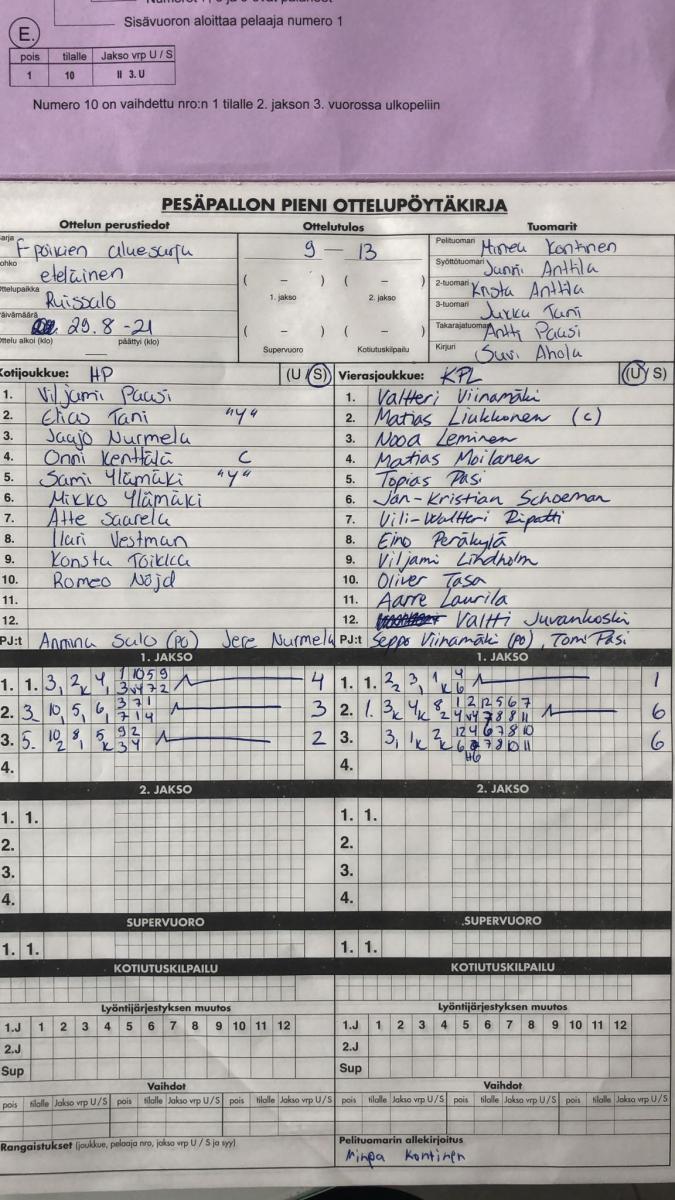 Sisävuoron aloittaa pelaaja numero 1
E.
pois tilalle Jakso vrp U / S
1 10 II 3. U
Numero 10 on vaihdettu nro:n 1 tilalle 2. jakson 3. vuorossa ulkopeliin
PESÄPALLON PIENI OTTELUPÖYTÄKIRJA
Ottelun perustiedot Ottelutulos Tuomarit
F-poikien aluesarja 9 – 13 Pelituomari Kontinen
eteläinen Syöttötuomari Junni Anttila
Ruissalo ( – ) ( – ) 2-tuomari Krista Anttila
1. jakso 2. jakso 3-tuomari Jukka Tani
29.8 -21 ( – ) ( – ) Takarajatuomari Antti Paasi
Ottelu alkoi (klo) päättyi (klo) Supervuoro Kotiutuskilpailu Kirjuri Suvi Ahola
Kotijoukkue: HP (U S) Vierasjoukkue: KPL (U S)
1. Viljami Paasi 1. Valtteri Viinamäki
2. Elias Tani "y" 2. Matias Liukkonen (c)
3. Jaajo Nurmela 3. Nooa Leminen
4. Onni Kenttälä C 4. Matias Moilanen
5. Sami Ylämäki "y" 5. Topias Pasi
6. Mikko Ylämäki 6. Jan-Kristian Schoeman
7. Atte Saarela 7. Vili-Waltteri Ripatti
8. Ilari Vestman 8. Eino Peräkylä
9. Konsta Toikka 9. Viljami Lindholm
10. Romeo Nöjd 10. Oliver Tasa
11. 11. Aarre Laurila
12. 12. Valtti Juvankoski
PJ:t Annina Salo (po) Jere Nurmela PJ:t Seppo Viinamäki (po), Tomi Pasi
1. JAKSO 1. JAKSO
1. 1. 3, 2k 4, 4 1. 1. 2 3, 1k 1
2. 3. 10, 5, 6, 3 2. 1. 3k 4k 8 6
3. 5. 10 8, 5k 2 3. 3, 1k 2k 6
4. 4.
2. JAKSO 2. JAKSO
1. 1. 1. 1.
2. 2.
3. 3.
4. 4.
SUPERVUORO SUPERVUORO
1. 1. 1. 1.
KOTIUTUSKILPAILU KOTIUTUSKILPAILU
Lyöntijärjestyksen muutos Lyöntijärjestyksen muutos
1.J 1 2 3 4 5 6 7 8 9 10 11 12 1.J 1 2 3 4 5 6 7 8 9 10 11 12
2.J 2.J
Sup Sup
Vaihdot Vaihdot
pois tilalle Jakso vrp U/S pois tilalle Jakso vrp U/S pois tilalle Jakso vrp U/S pois tilalle Jakso vrp U/S pois tilalle Jakso vrp U/S pois tilalle Jakso vrp U/S
Rangaistukset (joukkue, pelaaja nro, jakso vrp U / S ja syy) Pelituomarin allekirjoitus
Kontinen